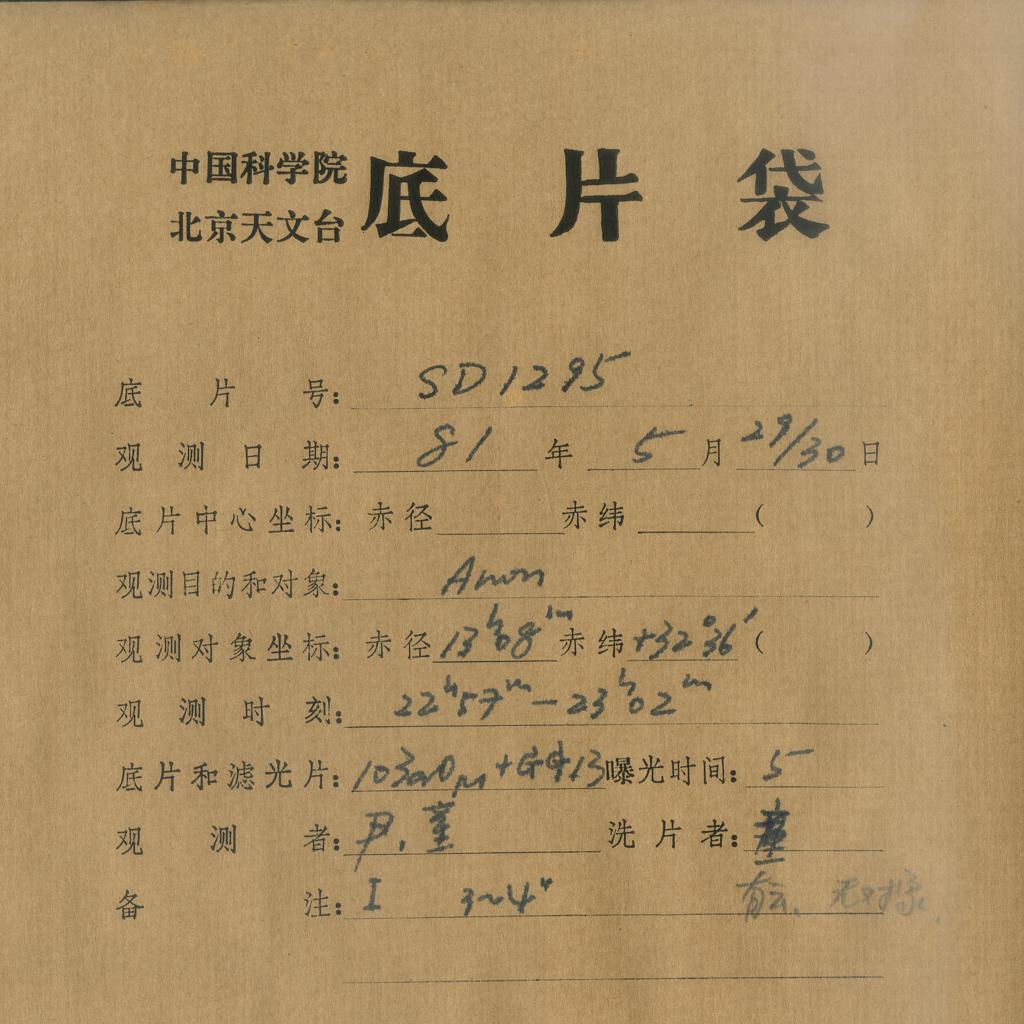 中国科学院
北京天文台
底片袋
底片号: SD1295
观测日期: 81年 5月 29/30日
底片中心坐标: 赤径 赤纬 ( )
观测目的和对象: Anon
观测对象坐标: 赤径 13h08m 赤纬 +32°36′ ( )
观测时刻: 22h57m—23h02m
底片和滤光片: 103aO 曝光时间: 5
观测者: 尹、董 洗片者: 董
备注: I 3~4" 有云、无对像